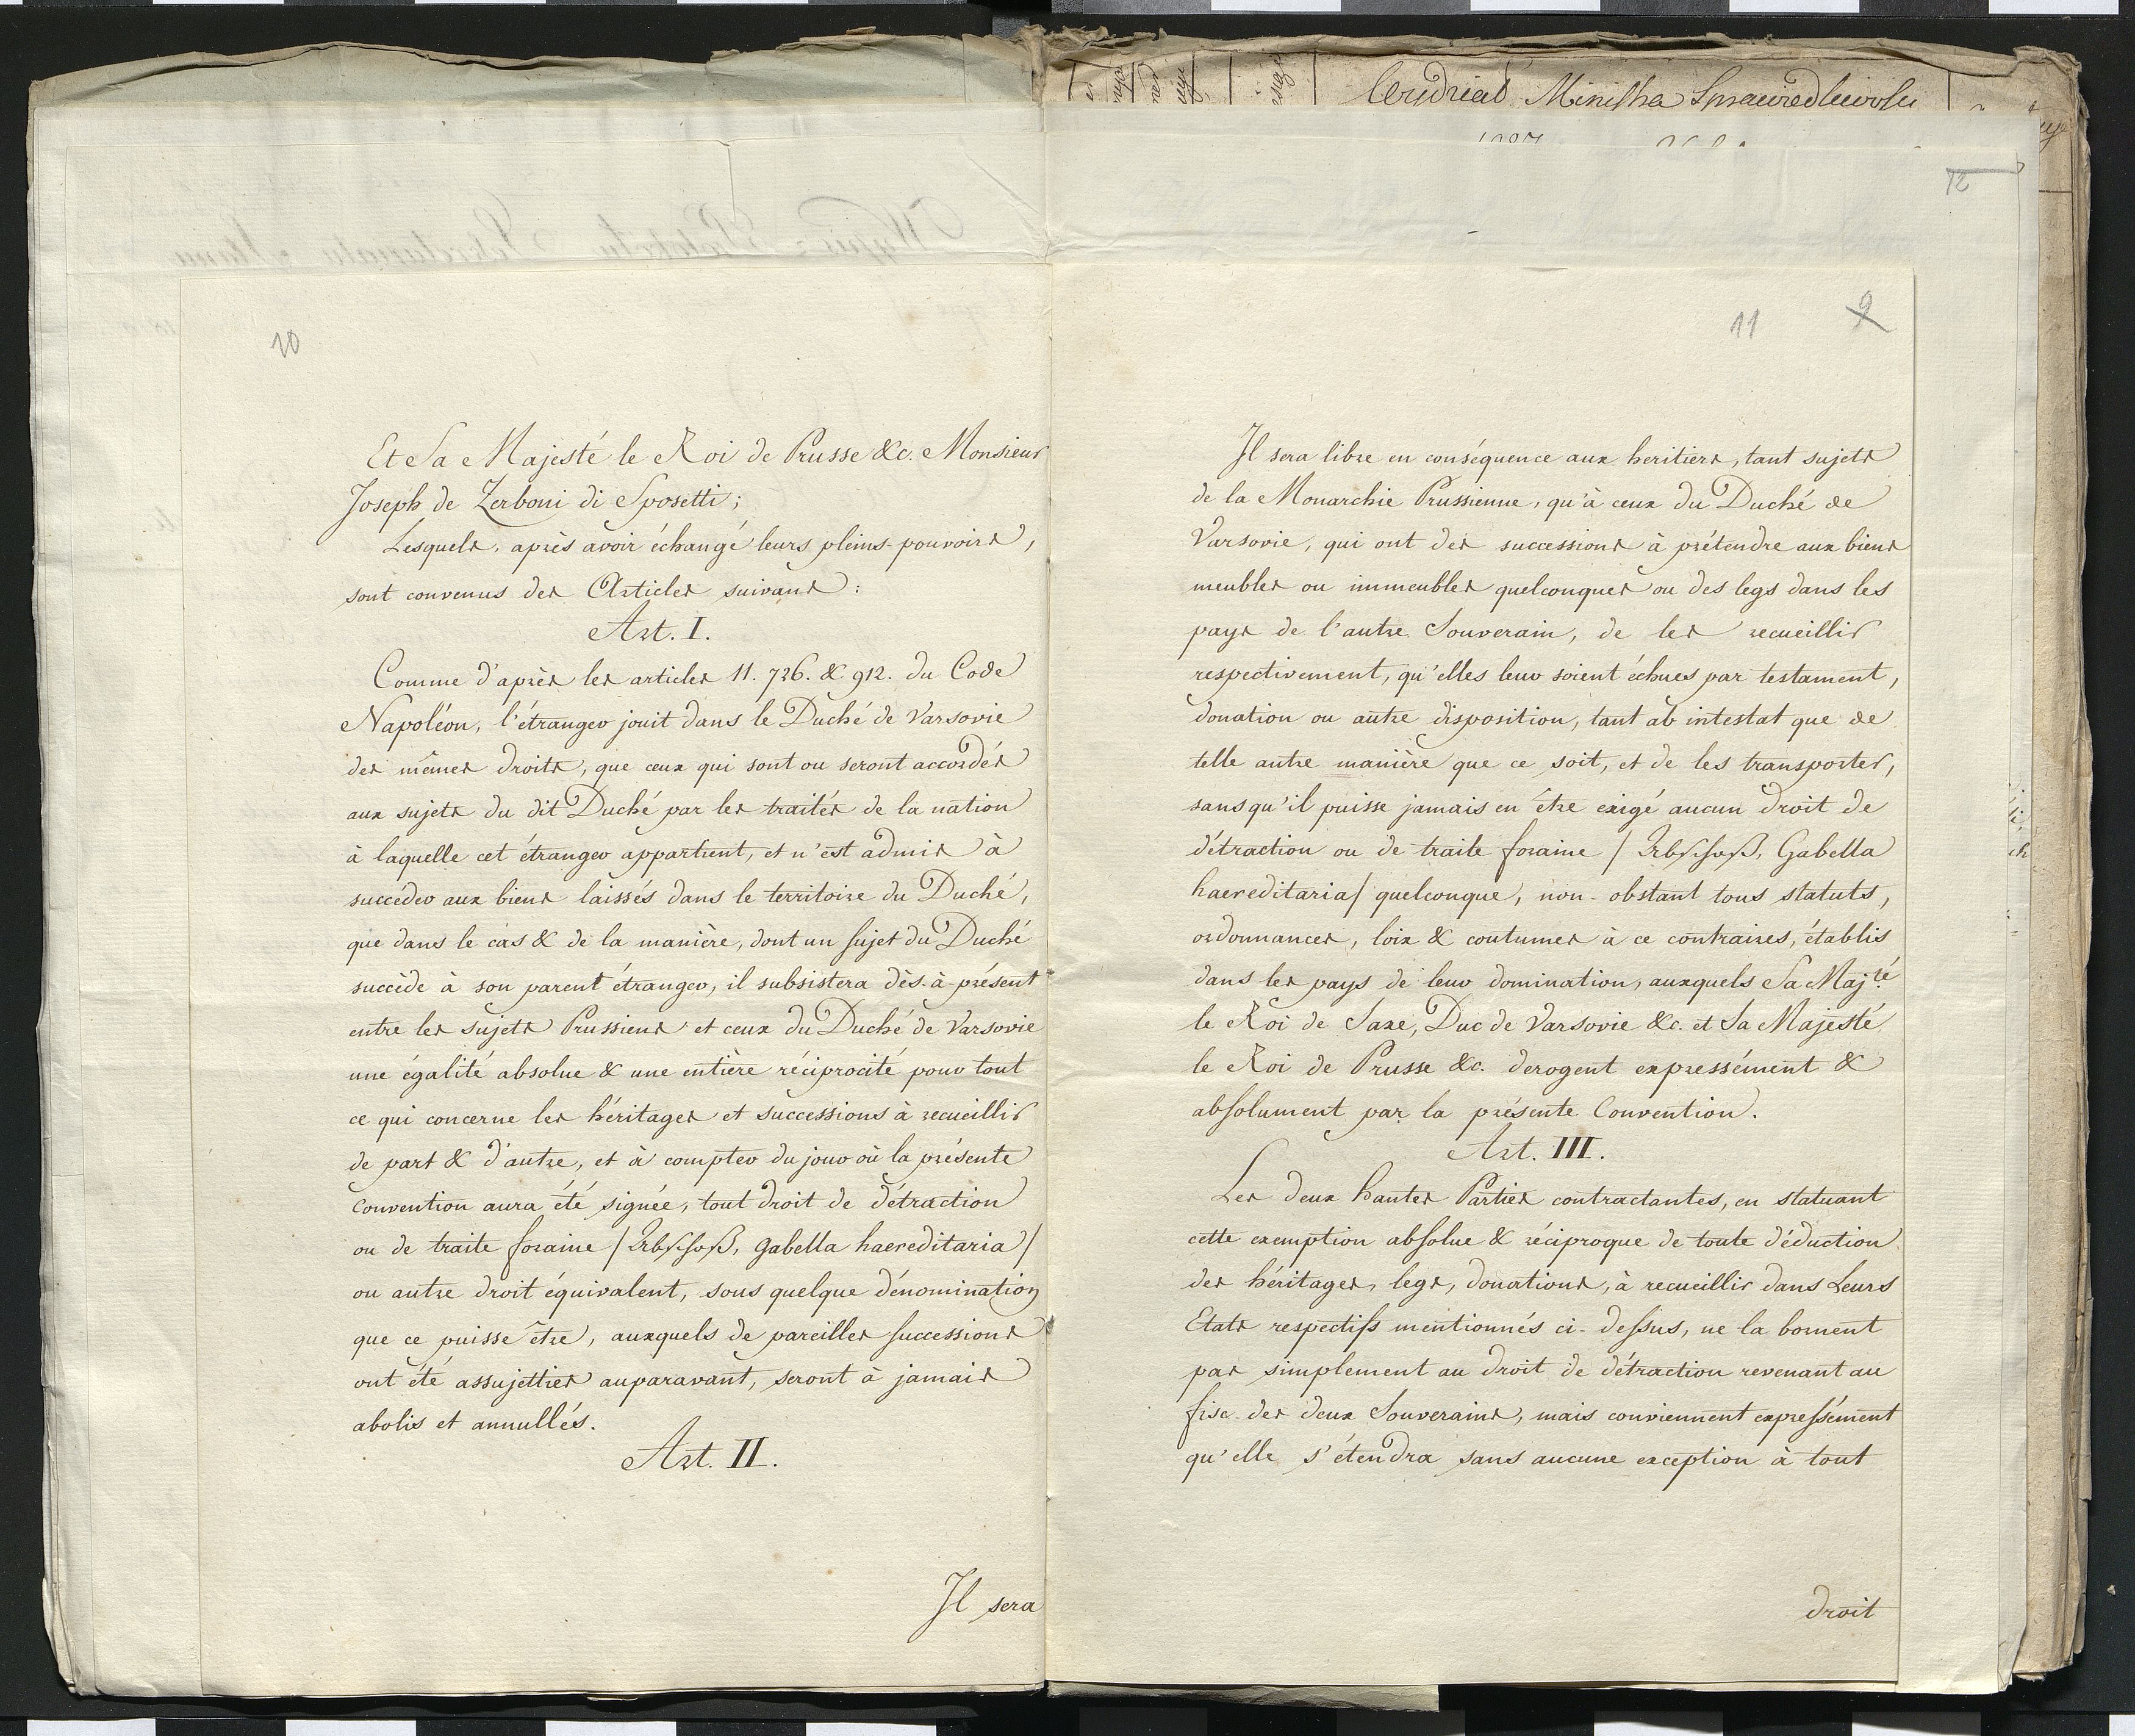 10
Et Sa Majesté le Roi de Prusse &c. Monsieur
Joseph de Zerboni di Sposetti;
Lesquels, après avoir échangé leurs pleins-pouvoirs,
sont convenus des Articles suivans:
Art. I.
Comme d'après les articles 11. 726. & 912. du Code
Napoléon, l'étranger jouit dans le Duché de Varsovie
des mêmes droits, que ceux qui sont ou seront accordés
aux sujets du dit Duché par les traités de la nation
à laquelle cet étranger appartient, et n'est admis à
succéder aux biens laissés dans le territoire du Duché,
que dans le cas & de la manière, dont un sujet du Duché
succède à son parent étranger, il subsistera dès-à-présent
entre les sujets Prussiens et ceux du Duché de Varsovie
une égalité absolue & une entière réciprocité pour tout
ce qui concerne les héritages et successions à recueillir
de part & d'autre, et à compter du jour où la présente
Convention aura été signée, tout droit de détraction
ou de traite foraine / Abschoß, Gabella haereditaria /
ou autre droit équivalent, sous quelque dénomination
que ce puisse être, auxquels de pareilles successions
ont été assujetties auparavant, seront à jamais
abolis et annullés.
Art. II.
Il sera
Ministra Sprawiedliwości
12
11 9
Il sera libre en conséquence aux heritiers, tant sujets
de la Monarchie Prussienne, qu'à ceux du Duché de
Varsovie, qui ont des successions à prétendre aux biens
meubles ou immeubles quelconques ou des legs dans les
pays de l'autre Souverain, de les recueillir
respectivement, qu'elles leur soient échues par testament,
donation ou autre disposition, tant ab intestat que de
telle autre manière que ce soit, et de les transporter,
sans qu'il puisse jamais en être exigé aucun droit de
détraction ou de traite foraine / Abschoß, Gabella
haereditaria / quelconque, non-obstant tous statuts,
ordonnances, loix & coutumes à ce contraires, établis
dans les pays de leur domination, auxquels Sa Maj.té
le Roi de Saxe, Duc de Varsovie &c. et Sa Majesté
le Roi de Prusse &c. derogent expressément &
absolument par la présente Convention.
Art. III.
Les deux hautes Parties contractantes, en statuant
cette exemption absolue & réciproque de toute déduction
des héritages, legs, donations, à recueillir dans Leurs
Etats respectifs mentionnés ci-dessus, ne la bornent
pas simplement au droit de détraction revenant au
fisc des deux Souverains, mais conviennent expressément
qu'elle s'étendra sans aucune exception à tout
droit